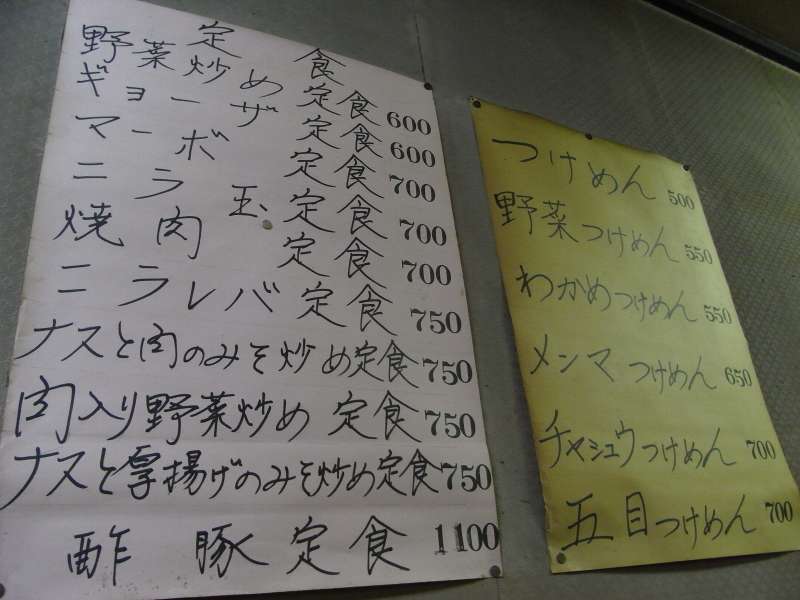 定食
野菜炒め定食 600
ギョーザ定食 600
マーボ定食 700
ニラ玉定食 700
焼肉定食 700
ニラレバ定食 750
ナスと肉のみそ炒め定食 750
肉入り野菜炒め定食 750
ナスと厚揚げのみそ炒め定食 750
酢豚定食 1100
つけめん 500
野菜つけめん 550
わかめつけめん 550
メンマつけめん 650
チャシュウつけめん 700
五目つけめん 700